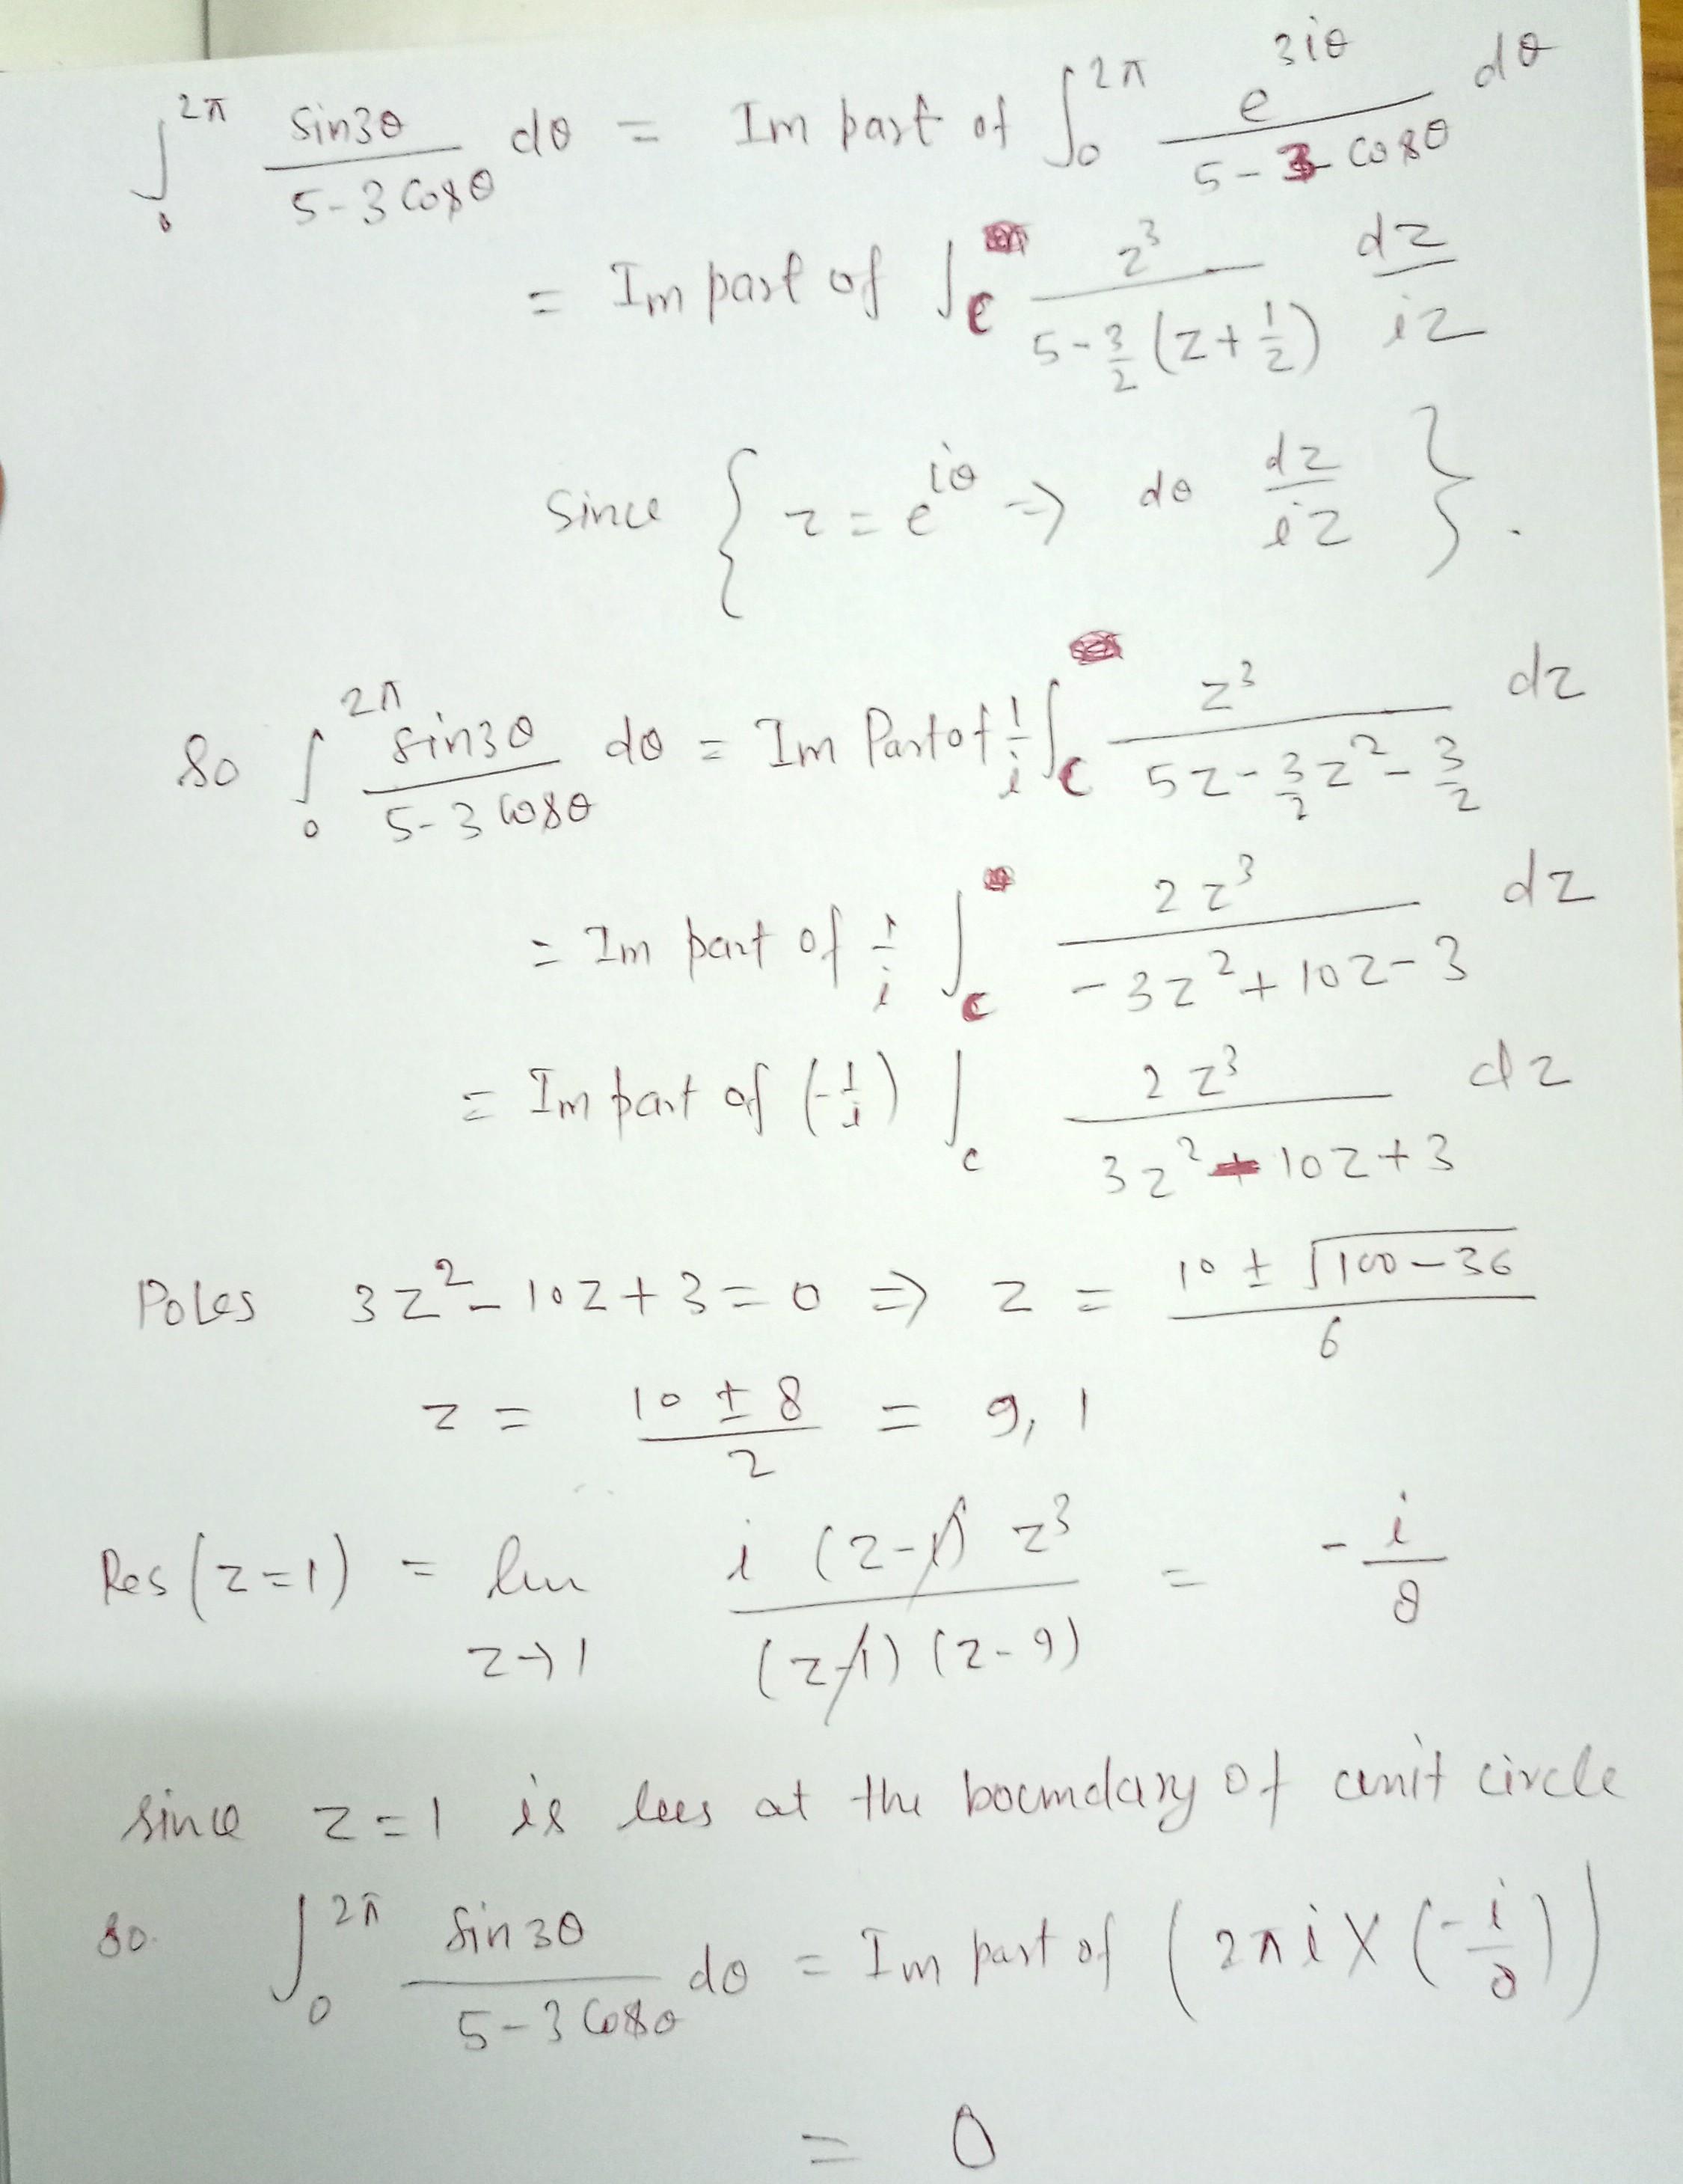 ∫₀^{2π} sin3θ / (5-3cosθ) dθ = Im part of ∫₀^{2π} e^{3iθ} / (5-3cosθ) dθ
= Im part of ∫_c z³ / (5-3/2(z+1/z)) dz/iz
since { z = e^{iθ} ⇒ dθ dz/iz }.
So ∫₀^{2π} sin3θ / (5-3cosθ) dθ = Im Part of 1/i ∫_c z³ / (5z-3/2z²-3/2) dz
= Im part of 1/i ∫_c 2z³ / (-3z²+10z-3) dz
= Im part of (-1/i) ∫_c 2z³ / (3z²-10z+3) dz
Poles 3z²-10z+3=0 ⇒ z = (10 ± √(100-36)) / 6
z = (10 ± 8) / 2 = 9, 1
Res(z=1) = lim_{z→1} i(z-1)z³ / ((z-1)(z-9)) = -i/8
since z=1 is lees at the boundary of unit circle
so. ∫₀^{2π} sin3θ / (5-3cosθ) dθ = Im part of (2πi×(-i/8))
= 0